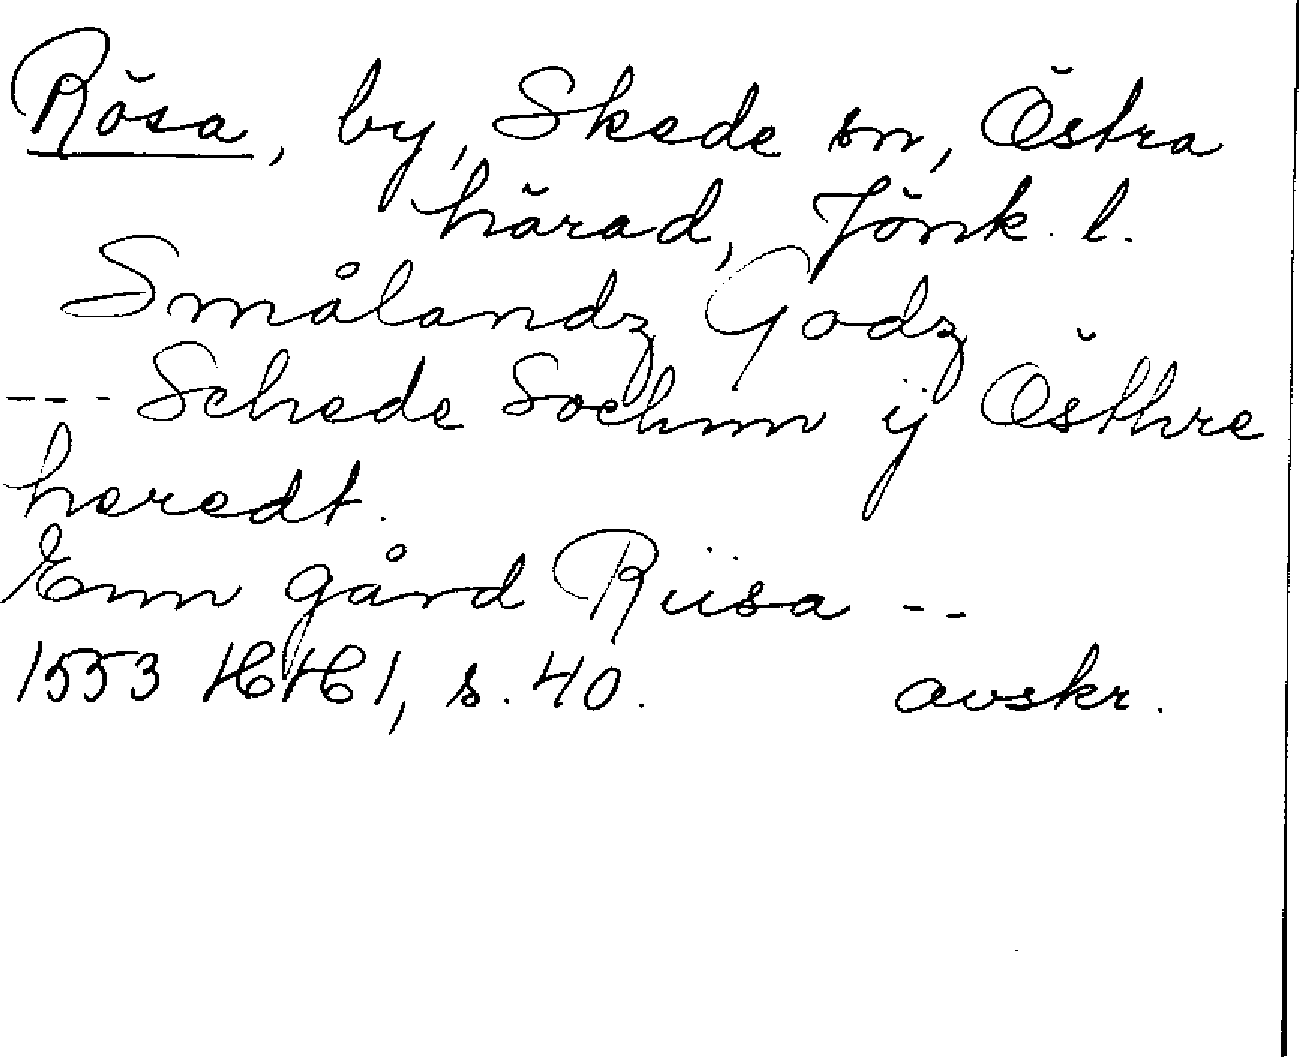 Rösa, by, Skede sn, Östra
härad, Jönk. l.
Smålandz Godz
--- Schede Sochnn ÿ Östhre
heredt.
Enn gård Riisa --
1553 HH1, s. 40. avskr.